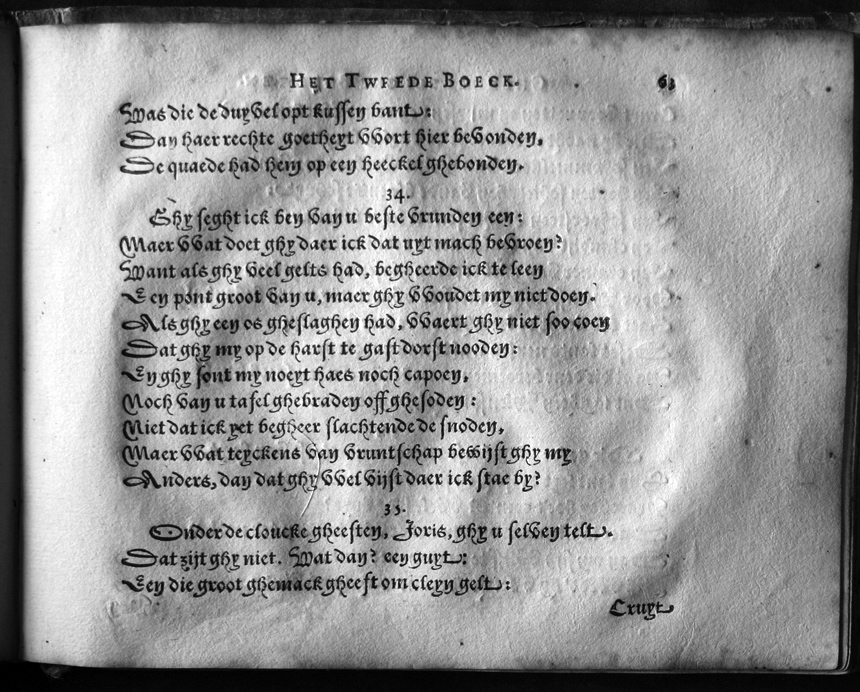 HET TWEEDE BOECK. 63
Was die de duyvel opt kussen bant:
Dan haer rechte goetheyt wort hier bevonden,
De quaede had hem op een heeckel ghebonden.
34.
Ghy seght ick ben van u beste vrunden een:
Maer wat doet ghy daer ick dat uyt mach bevroen?
Want als ghy veel gelts had, begheerde ick te leen
Een pont groot van u, maer ghy woudet my niet doen.
Als ghy een os gheslaghen had, waert ghy niet soo coen
Dat ghy my op de harst te gast dorst nooden:
En ghy sont my noeyt haes noch capoen,
Noch van u tafel ghebraden off ghesoden:
Niet dat ick yet begheer slachtende de snoden,
Maer wat teyckens van vruntschap bewijst ghy my
Anders, dan dat ghy wel vijst daer ick stae by?
35.
Onder de cloucke gheesten, Joris, ghy u selven telt.
Dat zijt ghy niet. Wat dan? een guyt:
Een die groot ghemack gheeft om cleyn gelt:
Cruyt